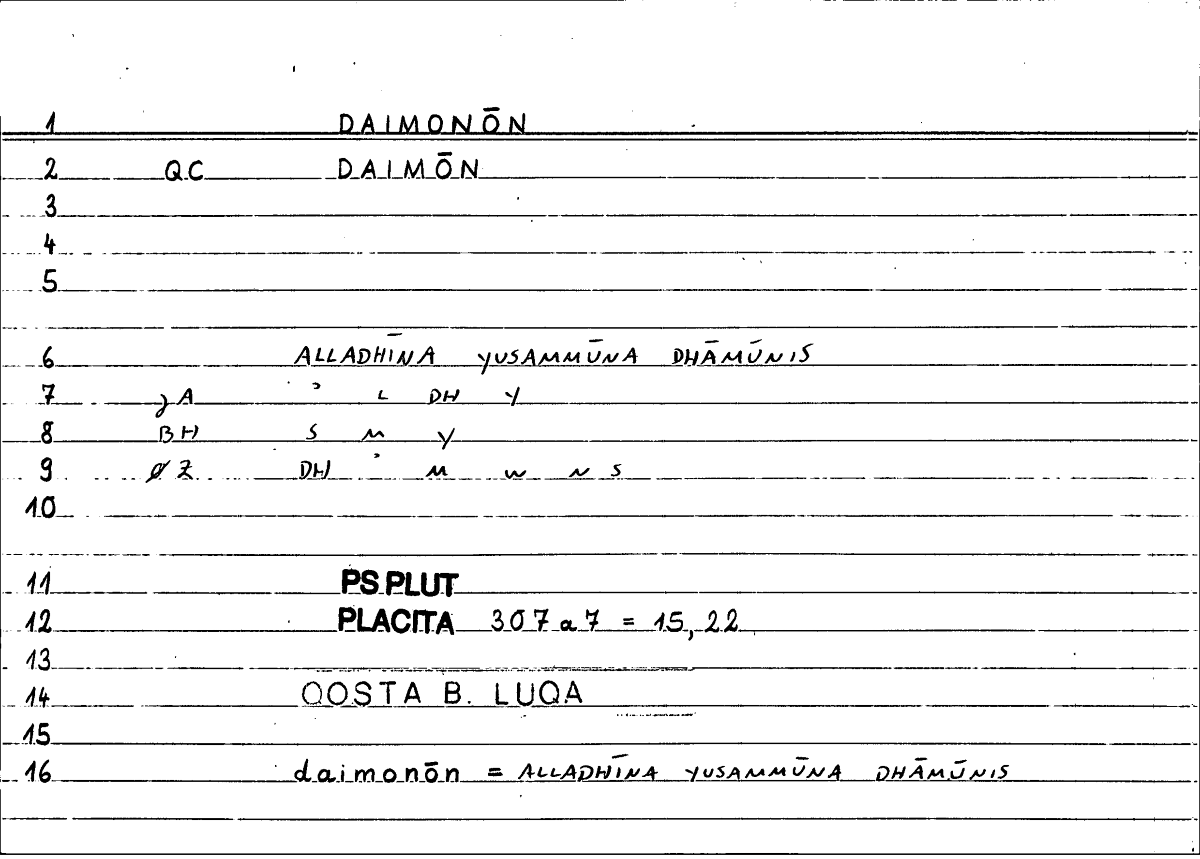 1 DAIMONŌN
2 QC DAIMŌN
3
4
5
6 ALLADHĪNA YUSAMMŪNA DHĀMŪNIS
7 γA ʾ L DH Y
8 BH S M Y
9 ØZ DH ʾ M W N S
10
11 PS PLUT
12 PLACITA 307a7 = 15,22
13
14 QOSTA B. LUQA
15
16 daimonōn = ALLADHĪNA YUSAMMŪNA DHĀMŪNIS